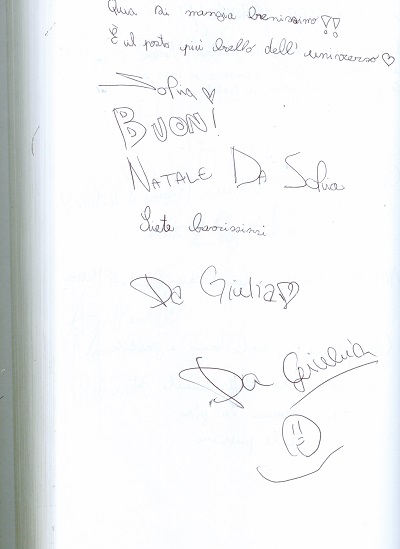 Qua si mangia benissimo!!
È il posto più bello dell'universo♡
Sofia ♡
BUON!
NATALE DA Sofia
Siete bravissimi
Da Giulia♡
Da Giulia